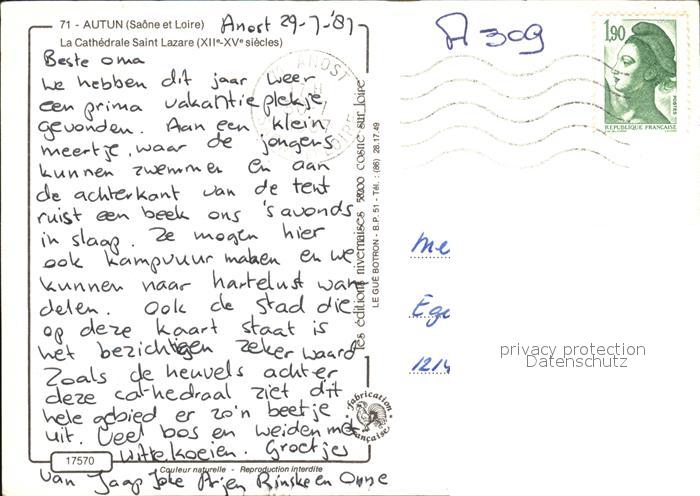 71 - AUTUN (Saône et Loire)
La Cathédrale Saint Lazare (XIIe-XVe siècles)
Anost 29-7-'87
Beste oma
we hebben dit jaar weer
een prima vakantieplekje
gevonden. Aan een klein
meertje, waar de jongens
kunnen zwemmen en aan
de achterkant van de tent
ruist een beek ons 's avonds
in slaap. Ze mogen hier
ook kampvuur maken en we
kunnen naar hartelust wan
delen. Ook de stad die
op deze kaart staat is
het bezichtigen zeker waard
Zoals de heuvels achter
deze cathedraal ziet dit
hele gebied er zo'n beetje
uit. Veel bos en weiden met
witte koeien. Groetjes
van Jaap Joke Arjen Rinske en Onne
17570
Couleur naturelle - Reproduction interdite
les éditions nivernaises 58200 cosne sur loire
LE GUÉ BOTRON - B.P. 51 - Tél. : (86) 28.17.49
Fabrication
Française
ANOST
LOIRE
A 309
1,90
POSTES
REPUBLIQUE FRANÇAISE
Me
Ege
1214
privacy protection
Datenschutz